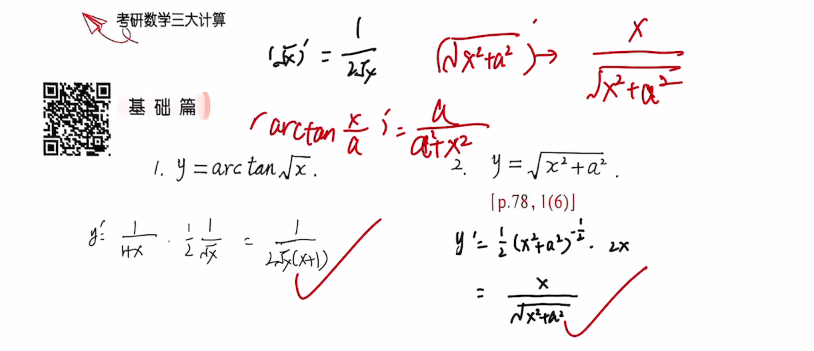 考研数学三大计算
(√x)' = 1/(2√x)
(√(x²+a²))' → x/√(x²+a²)
基础篇
(arctan x/a)' = a/(a²+x²)
1. y = arctan√x.
2. y = √(x²+a²).
[p.78, 1(6)]
y' = 1/(1+x) · 1/2 1/√x = 1/(2√x(x+1))
y' = 1/2 (x²+a²)^(-1/2) · 2x
= x/√(x²+a²)